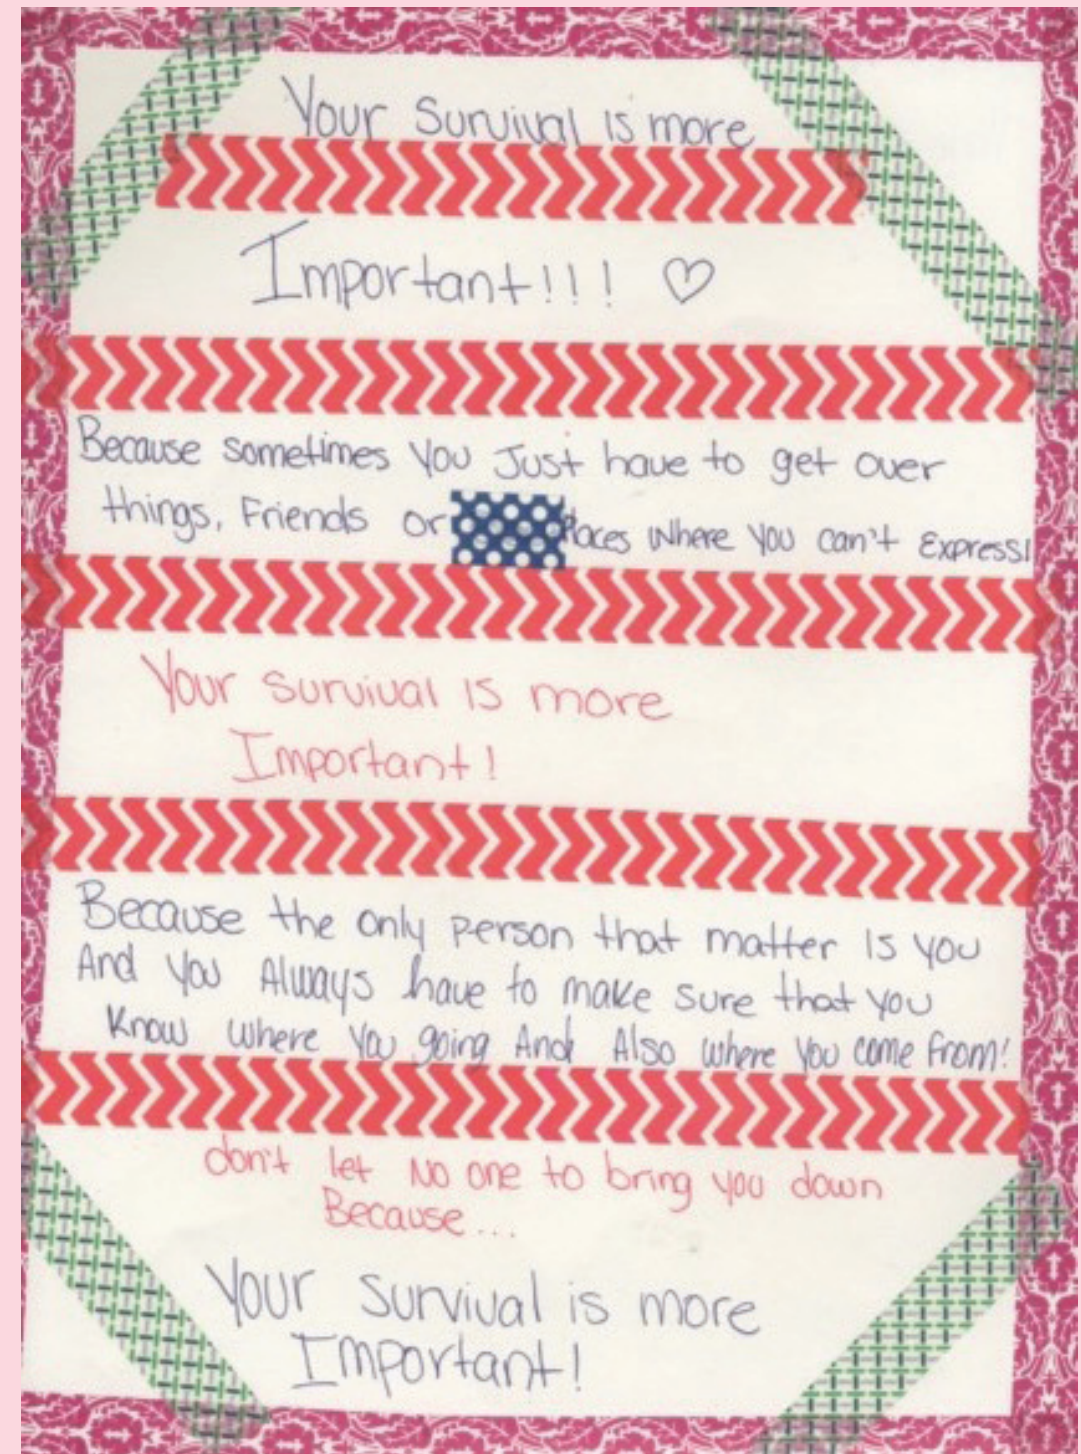 Your Survival is more
Important!!! ♡
Because sometimes you Just have to get over
things, Friends or Places Where you can't Express!
Your survival is more
Important!
Because the only person that matter is you
And you Always have to make sure that you
Know where you going And Also where you come from!
don't let No one to bring you down
Because...
Your Survival is more
Important!